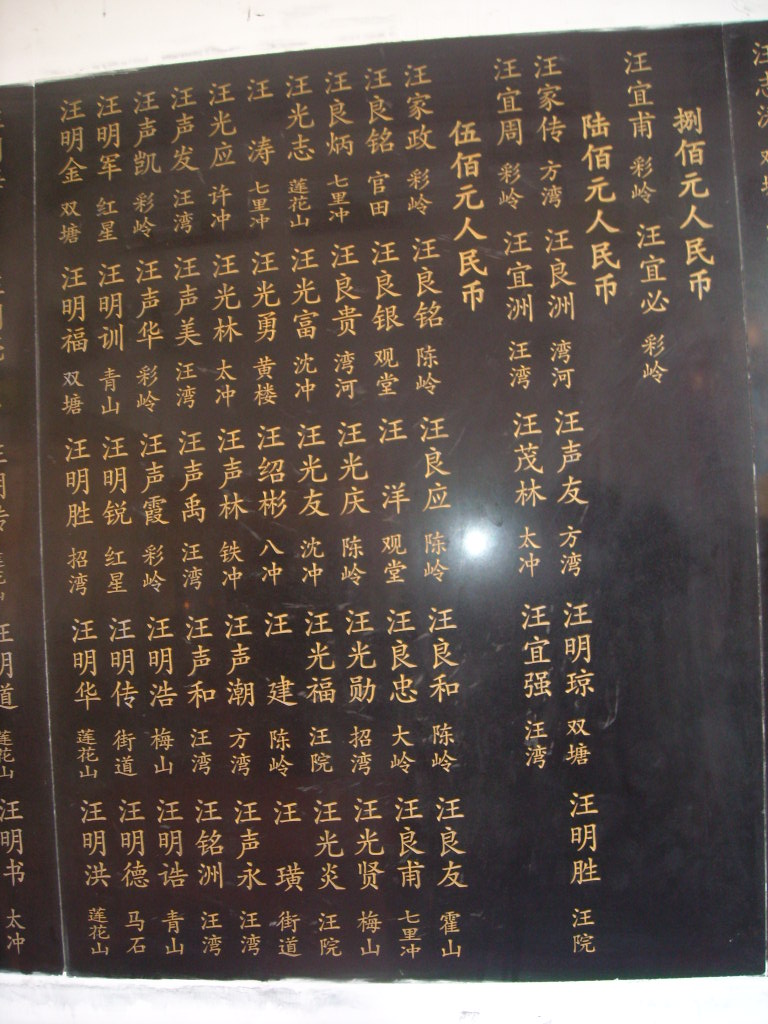 汪志
捌佰元人民币
汪宜甫 彩岭 汪宜必 彩岭
陆佰元人民币
汪家传 方湾 汪良洲 湾河 汪声友 方湾 汪明琼 双塘 汪明胜 汪院
汪宜周 彩岭 汪宜洲 汪湾 汪茂林 太冲 汪宜强 汪湾
伍佰元人民币
汪家政 彩岭 汪良铭 陈岭 汪良应 陈岭 汪良和 陈岭 汪良友 霍山
汪良铭 官田 汪良银 观堂 汪 洋 观堂 汪良忠 大岭 汪良甫 七里冲
汪良炳 七里冲 汪良贵 湾河 汪光庆 陈岭 汪光勋 招湾 汪光贤 梅山
汪光志 莲花山 汪光富 沈冲 汪光友 沈冲 汪光福 汪院 汪光炎 汪院
汪 涛 七里冲 汪光勇 黄楼 汪绍彬 八冲 汪 建 陈岭 汪 璜 街道
汪光应 许冲 汪光林 太冲 汪声林 铁冲 汪声潮 方湾 汪声永 汪湾
汪声发 汪湾 汪声美 汪湾 汪声禹 汪湾 汪声和 汪湾 汪铭洲 汪湾
汪声凯 彩岭 汪声华 彩岭 汪声霞 彩岭 汪明浩 梅山 汪明诰 青山
汪明军 红星 汪明训 青山 汪明锐 红星 汪明传 街道 汪明德 马石
汪明金 双塘 汪明福 双塘 汪明胜 招湾 汪明华 莲花山 汪明洪 莲花山
汪明道 莲花山 汪明书 太冲